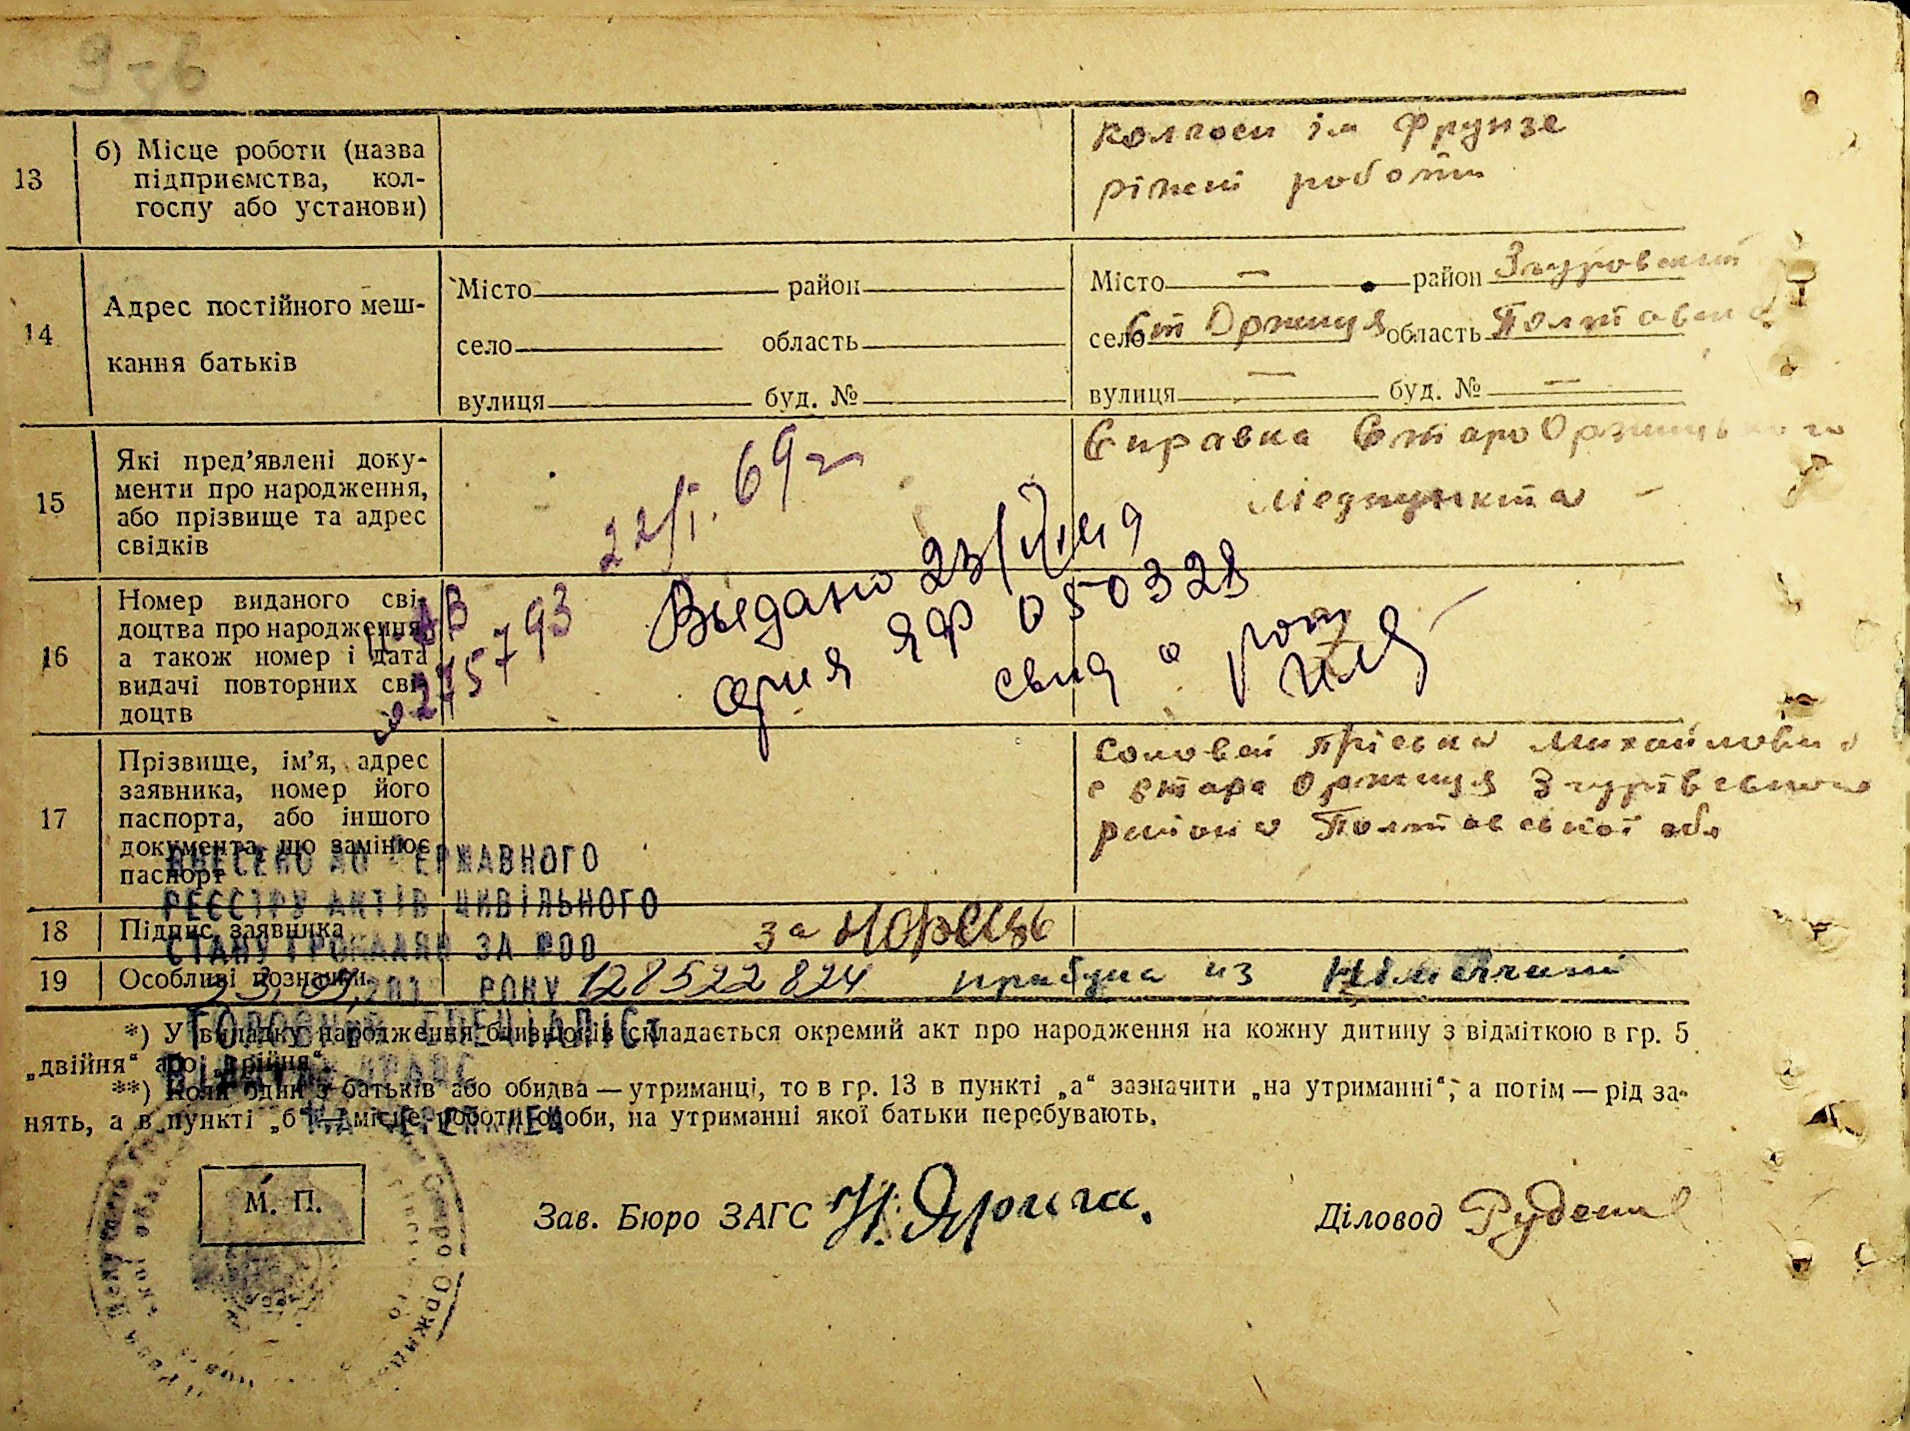 13
б) Місце роботи (назва
підприємства, кол-
госпу або установи)
колгосп ім Фрунзе
різні роботи
14
Адрес постійного меш-
кання батьків
Місто район
село область
вулиця буд. №
Місто — район Згуровский
село Ст Оржиця область Полтавська
вулиця — буд. № —
15
Які пред’явлені доку-
менти про народження,
або прізвище та адрес
свідків
Справка Старооржицького
Медпункта
22/I. 69 г
16
Номер виданого сві-
доцтва про народження,
а також номер і дата
видачі повторних сві-
доцтв
275793
Выдано 23/
серия ЯФ 050328
свид о рож
17
Прізвище, ім’я, адрес
заявника, номер його
паспорта, або іншого
документа, що замінює
паспорт
Соловей Михайловна
с Стара Оржиця Згурівського
района Полтавської обл
ВНЕСЕНО ДО ДЕРЖАВНОГО
РЕЄСТРУ АКТІВ ЦИВІЛЬНОГО
СТАНУ ГРОМАДЯН ЗА №00
РОКУ 128522824
ГОЛОВНИЙ СПЕЦІАЛІСТ
18
Підпис заявника
за
19
Особливі познаки
прибула из Німеччині
*) У випадку народження близнюків складається окремий акт про народження на кожну дитину з відміткою в гр. 5
„двійня“ або „трійня“.
**) Коли один з батьків або обидва — утриманці, то в гр. 13 в пункті „а“ зазначити „на утриманні“, а потім — рід за-
нять, а в пункті „б“ — місце роботи особи, на утриманні якої батьки перебувають.
М. П.
Зав. Бюро ЗАГС
Діловод Руденко